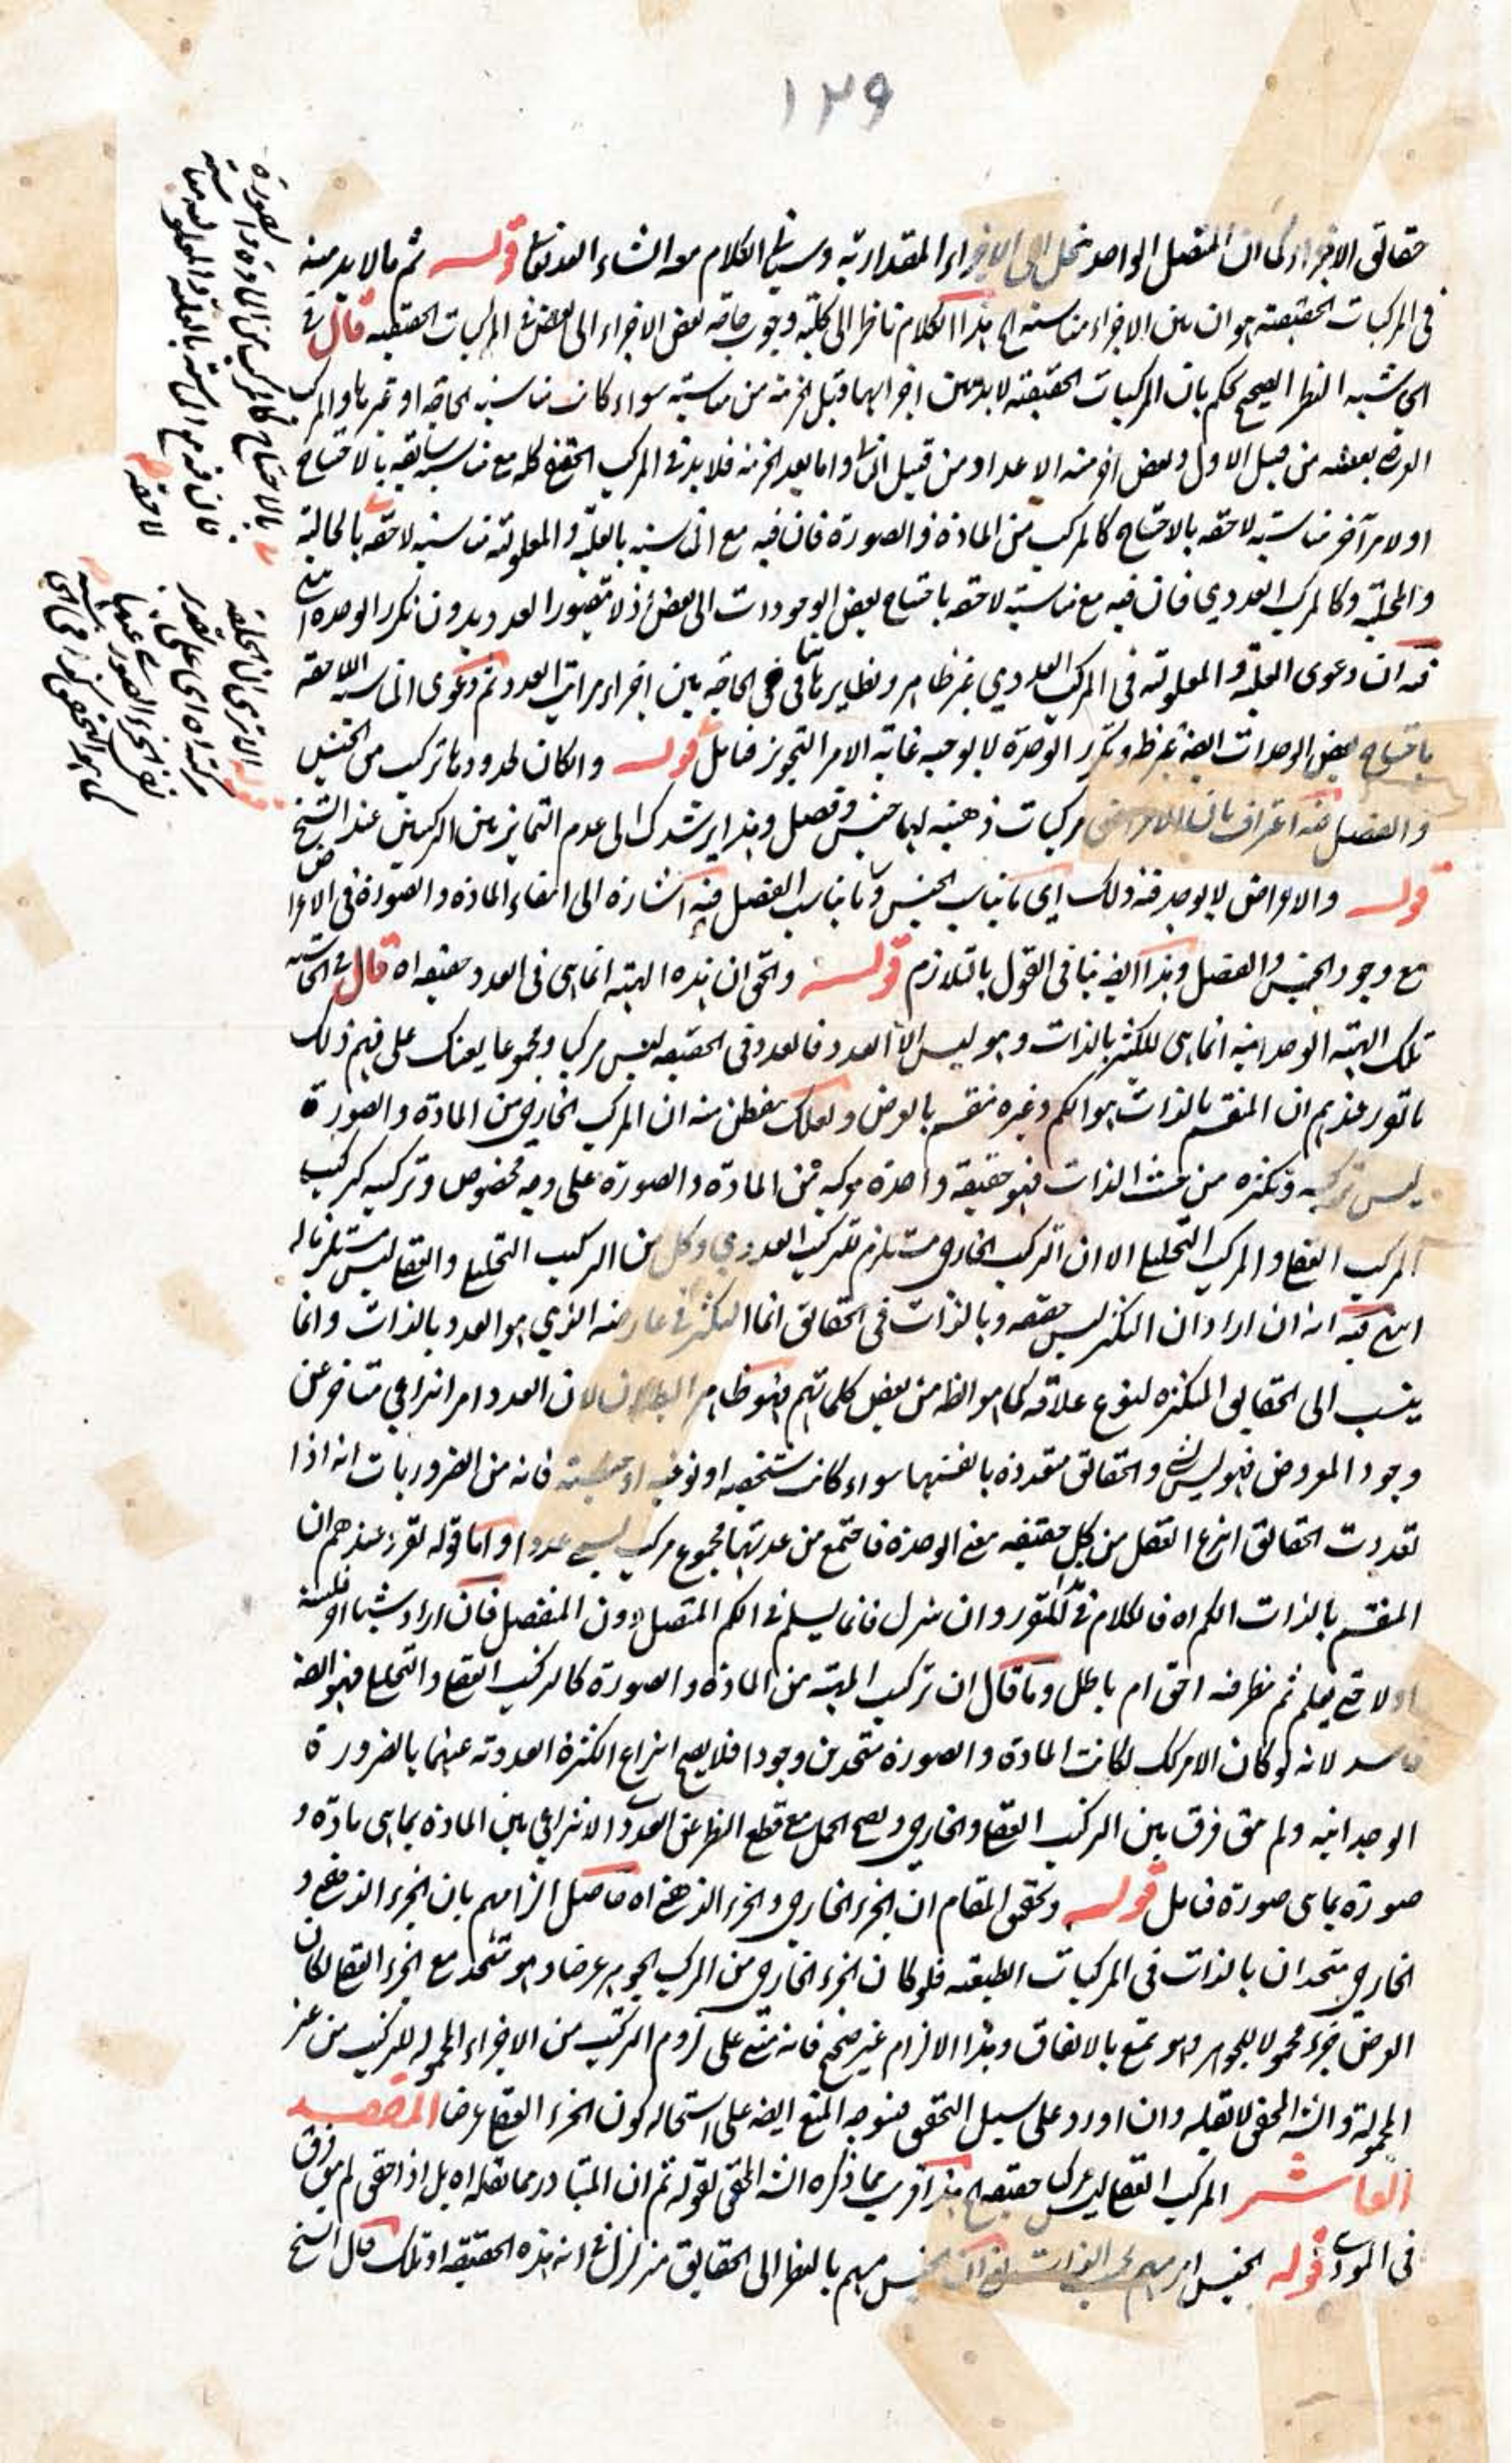 ١٢٩
حقائق الاجزاء كما ان المتصل الواحد ينحل الى الاجزاء المقدارية وسيأتي الكلام معه انشاء الله تعالى قوله ثم مالا بد منه
في المركبات الحقيقية هو ان بين الاجزاء مناسبة الخ هذا الكلام ناظر الى كلية وجوب حاجة بعض الاجزاء الى بعض في المركبات الحقيقية قال في
الحاشية النظر الصحيح يحكم بان المركبات الحقيقية لابد بين اجزائها قبل الجزئية من مناسبة سواء كانت مناسبة بالحاجة او غيرها والمركب
بعضه من قبيل الاول وبعض اخر منه الاعداد من قبيل الثاني واما بعد الجزئية فلابد في المركب الحقيقي كله مع مناسبة سابقة بالاحتياج
او لامر آخر مناسبة لاحقة بالاحتياج كالمركب من المادة والصورة فان فيه مع المناسبة بالعلية والمعلولية مناسبة لاحقة بالحالية
والمحلية وكالمركب العددي فان فيه مع مناسبة لاحقة باحتياج بعض الوحدات الى بعض اذ لا يتصور العدد بدون تكرر الوحدة انتهى
فيه ان دعوى العلية والمعلولية في المركب العددي غير ظاهر ونظايرها في الحاجة بين اجزاء مراتب العدد ثم دعوى المناسبة اللاحقة
باحتياج بعض الوحدات ايضا غير ظ وتكرر الوحدة لا يوجبه غاية الامر التجويز فتامل قوله وان كان لحدودها تركب من الجنس
والفصل فيه اعتراف بان الاعراض مركبات ذهنية لها جنس وفصل وهذا يرشدك الى عدم التمايز بين التركيبين عند الشيخ
قوله والاعراض لا يوجد فيه ذلك اي ما يناسب الجنس وما يناسب الفصل فيه اشارة الى انتفاء المادة والصورة في الاعراض
مع وجود الجنس والفصل وهذا ايضا ينافي القول بالتلازم قوله والحق ان هذه الهيئة انما هي في العدد حقيقة اه قال في الحاشية
تلك الهيئة الوحدانية انما هي للكثير بالذات وهو ليس الا العدد فالعدد في الحقيقة ليس مركبا ومجموعا يعينك على فهم ذلك
ما تقرر عندهم ان المنقسم بالذات هو الكم وغيره منقسم بالعرض ولعلك تتفطن منه ان المركب الخارجي من المادة والصورة
ليس تركبه وتكثره من حيث الذات فهو حقيقة واحدة مركبة من المادة والصورة على وجه مخصوص وتركيبه كتركيب
المركب العقلي والمركب التحليلي الا ان التركيب الخارجي مستلزم للتركيب العددي وكل من التركيب التحليلي والعقلي ليس مستلزما له
انتهى فيه انه ان اراد ان التكثر ليس حقيقة وبالذات في الحقائق انما التكثر في عارضه الذي هو العدد بالذات وانما
ينسب الى الحقائق المتكثرة لنوع علاقة كما هو الظ من بعض كلماتهم فهو ظاهر البطلان لان العدد امر انتزاعي متاخر عن
وجود المعروض فهو ليس والحقائق متعددة بانفسها سواء كانت شخصية او نوعية او جنسية فانه من الضروريات انه اذا
تعددت الحقائق انتزع العقل من كل حقيقة معنى الوحدة فاجتمع من عدتها مجموع مركب يسمى عددا واما قوله تقرر عندهم ان
المنقسم بالذات الكم اه فالكلام في المقرر وان نزل فانما يسلم في الكم المتصل دون المنفصل فان اراد شيئا اخر فليبينه
اولا حتى يعلم ثم ينظر فيه احق ام باطل وما قال ان تركيب الهيئة من المادة والصورة كالتركيب العقلي والتحليلي فهو ايضا
فاسد لانه لو كان الامر كك لكانت المادة والصورة متحدين وجودا فلا يصح انتزاع الكثرة العددية عنهما بالضرورة
الوجدانية ولم يبق فرق بين التركيب العقلي والخارجي ويصح الحمل مع قطع النظر عن العدد الانتزاعي بين المادة بما هي مادة و
صورة بما هي صورة فتامل قوله وتحقيق المقام ان الجزء الخارجي والجزء الذهني اه حاصل الزامهم بان الجزء الذهني و
الخارجي متحدان بالذات في المركبات الطبيعية فلو كان الجزء الخارجي من المركب الجوهر عرضا وهو متحد مع الجزء العقلي لكان
العرض جزء محمولا للجوهر وهو يمتنع بالاتفاق وهذا الالزام غير صحيح فانه مبتنى على لزوم المركب من الاجزاء المحمولة للتركيب من غير
المحمولة والشه المحقق لا يقبله وان اورد على سبيل التحقيق فيتوجه المنع ايضا على استحالة كون الجزء العقلي عرضا المقصد
العاشر المركب العقلي ليس مركبا حقيقة الخ هذا قريب مما ذكره الشه المحقق لقوله ثم ان المتبادر مما نقله اه بل اذا حقق لم يبق فرق
في المؤدى قوله الجنس امر مبهم بحسب الذات الجنس مبهم بالنظر الى الحقائق متزلزل في انه هذه الحقيقة او تلك قال الشيخ
بالاحتياج كالمركب من المادة والصورة
فان فيه مع المناسبة بالعلية والمعلولية مناسبة
لاحقة